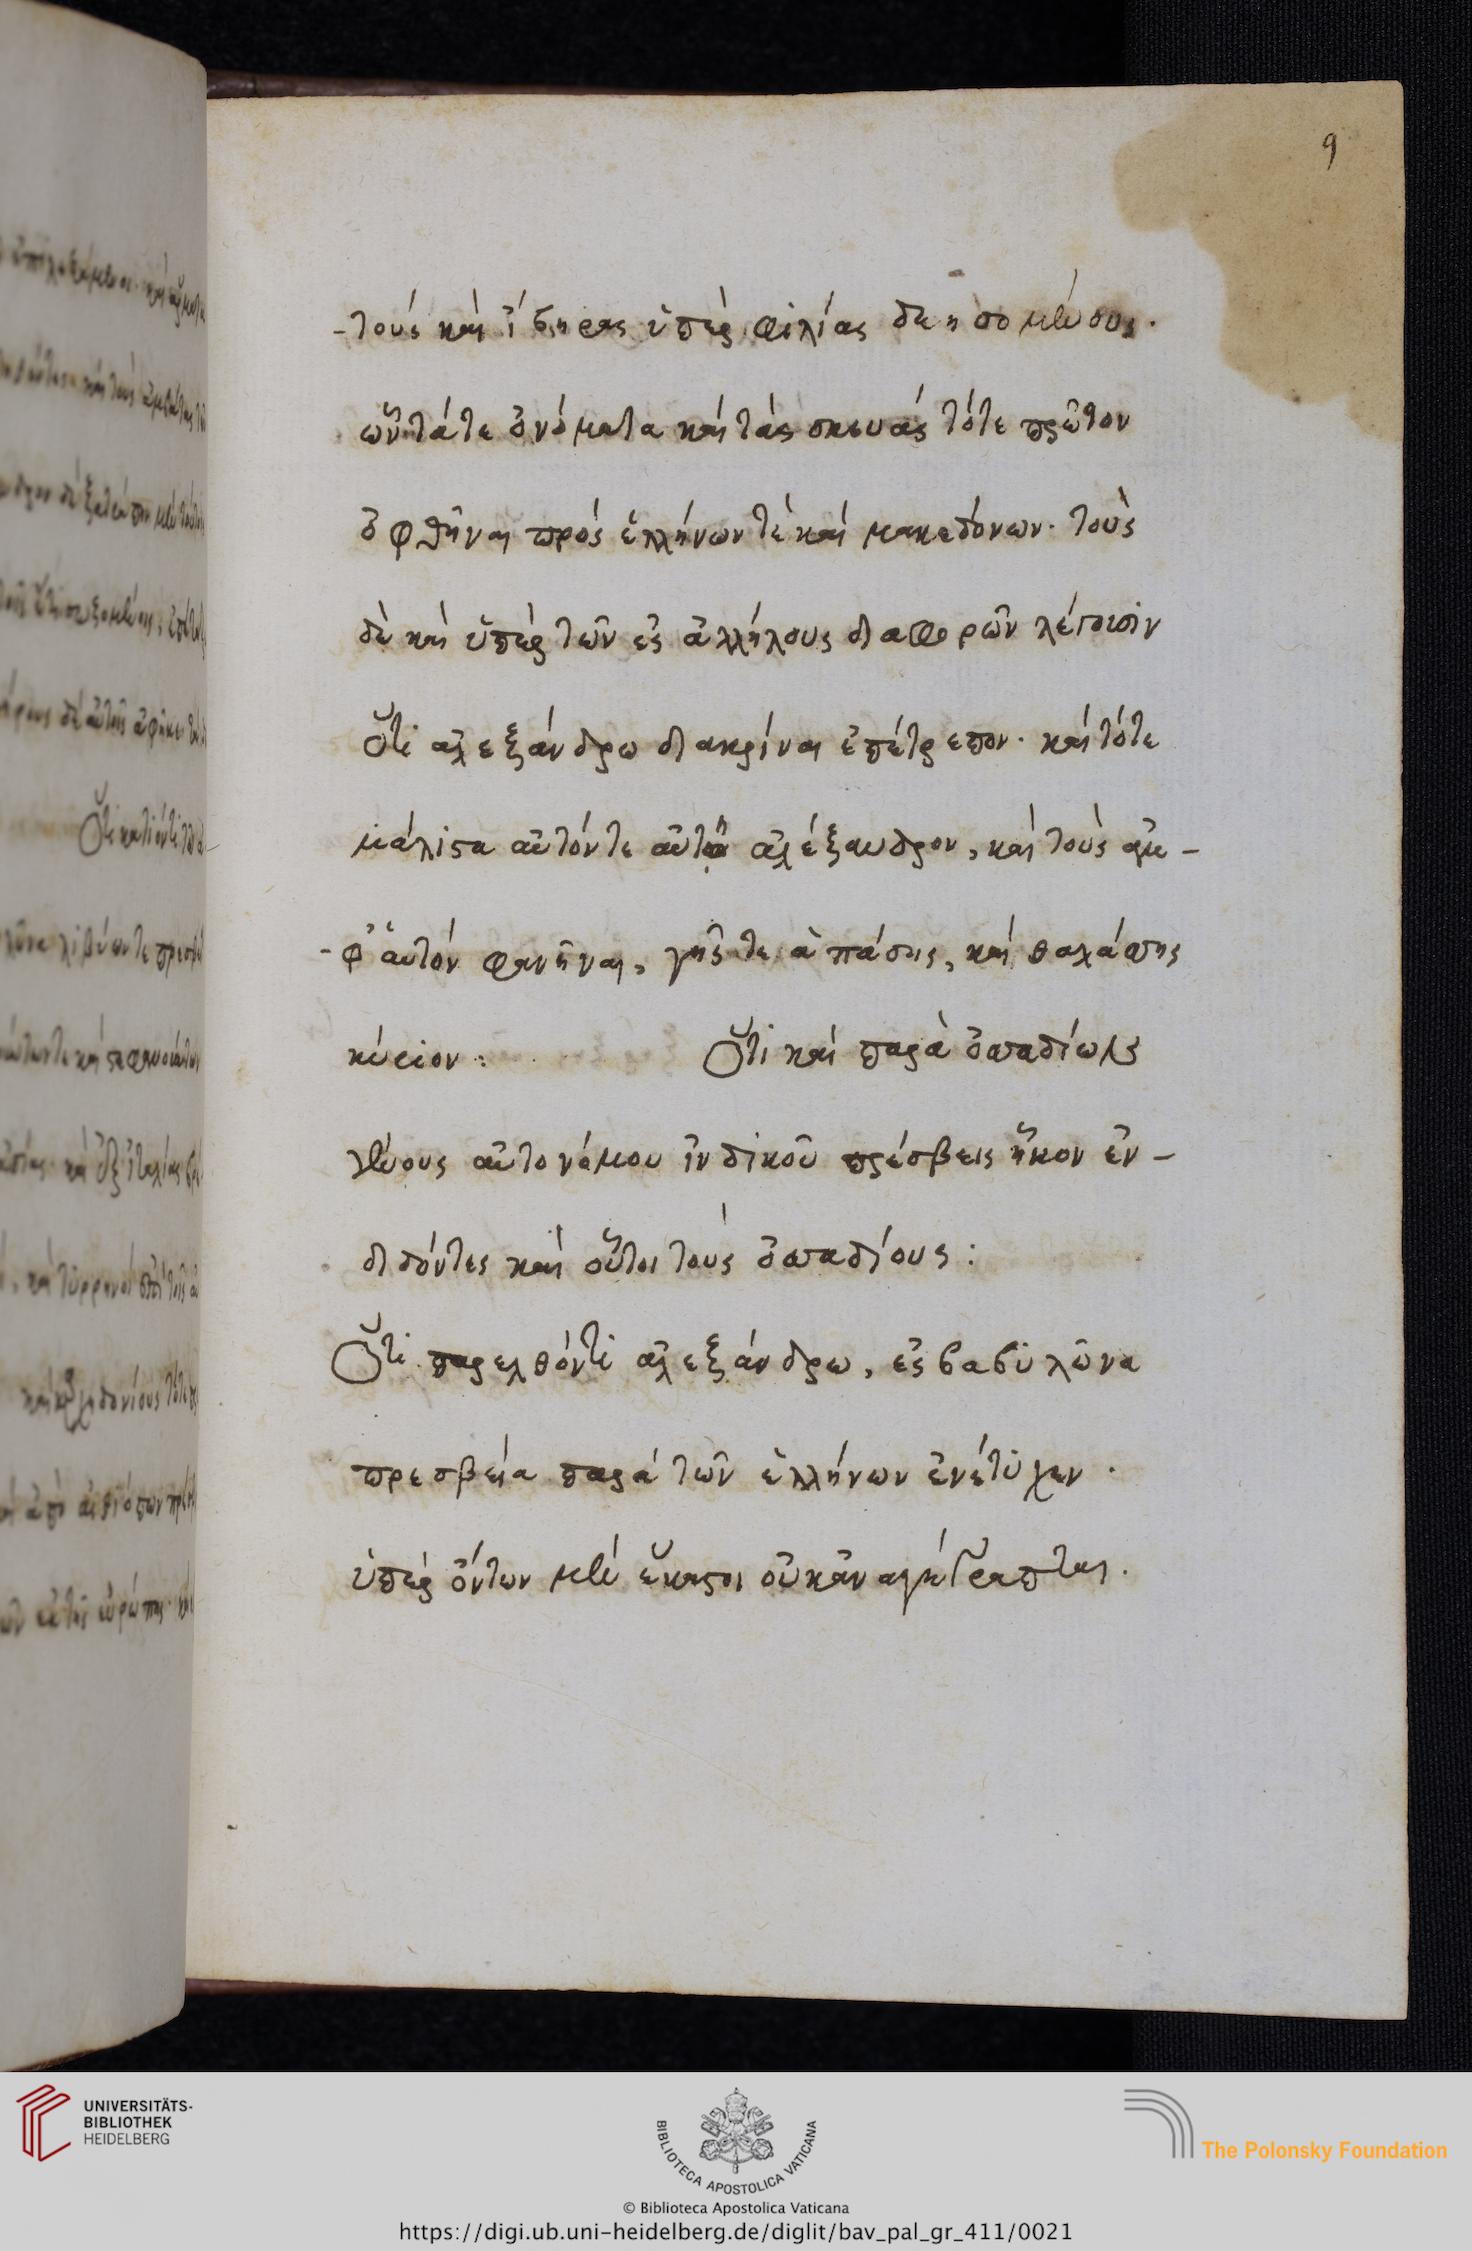 9
-τους καὶ ἴβηρας ὑπὲρ φιλίας δεησομένους.
ὧν τά τε ὀνόματα καὶ τὰς σκευάς τότε πρῶτον
ὀφθῆναι πρός ἑλλήνων τὲ καὶ μακεδόνων. τοὺς
δὲ καὶ ὑπὲρ τῶν εἰς ἀλλήλους διαφορῶν λέγουσιν
ὅτι ἀλεξάνδρω διακρίναι ἐπέτρεπον. καὶ τότε
μάλιστα αὐτόν τε αὐτῶ ἀλέξανδρον, καὶ τοὺς ἀμ-
-φ' αὑτόν φανῆναι, γῆς τε ἁπάσης, καὶ θαλάσσης
κύριον: Ὅτι καὶ παρὰ ὀσσαδίων
γένους αὐτονόμου ἰνδικοῦ πρέσβεις ἧκον ἐν-
διδόντες καὶ οὗτοι τοὺς ὀσσαδίους:
Ὅτι παρελθόντι ἀλεξάνδρω, εἰς βαβυλῶνα
πρεσβεία παρά τῶν ἑλλήνων ἐνέτυχεν.
ὑπὲρ ὄντων μὲν ἕκαστοι οὐκ ἀναγέγραπται.
UNIVERSITÄTS-
BIBLIOTHEK
HEIDELBERG
BIBLIOTECA APOSTOLICA VATICANA
© Biblioteca Apostolica Vaticana
The Polonsky Foundation
https://digi.ub.uni-heidelberg.de/diglit/bav_pal_gr_411/0021